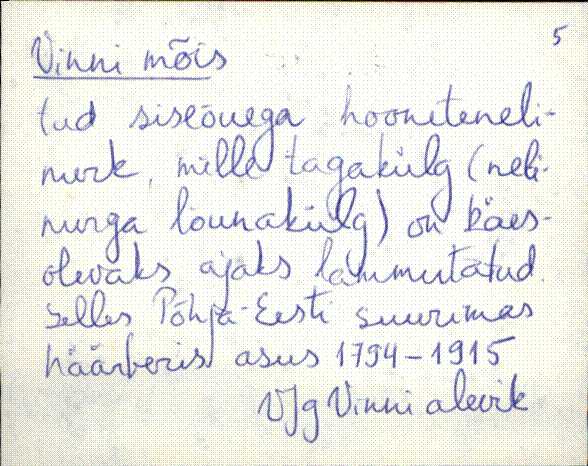 5
Vinni mõis
tud siseõuega hooneteneli-
nurk, mille tagakülg (neli-
nurga lõunakülg) on käes-
olevaks ajaks lammutatud.
Selles Põhja-Eesti suurimas
häärberis asus 1794-1915
VJg Vinni alevik